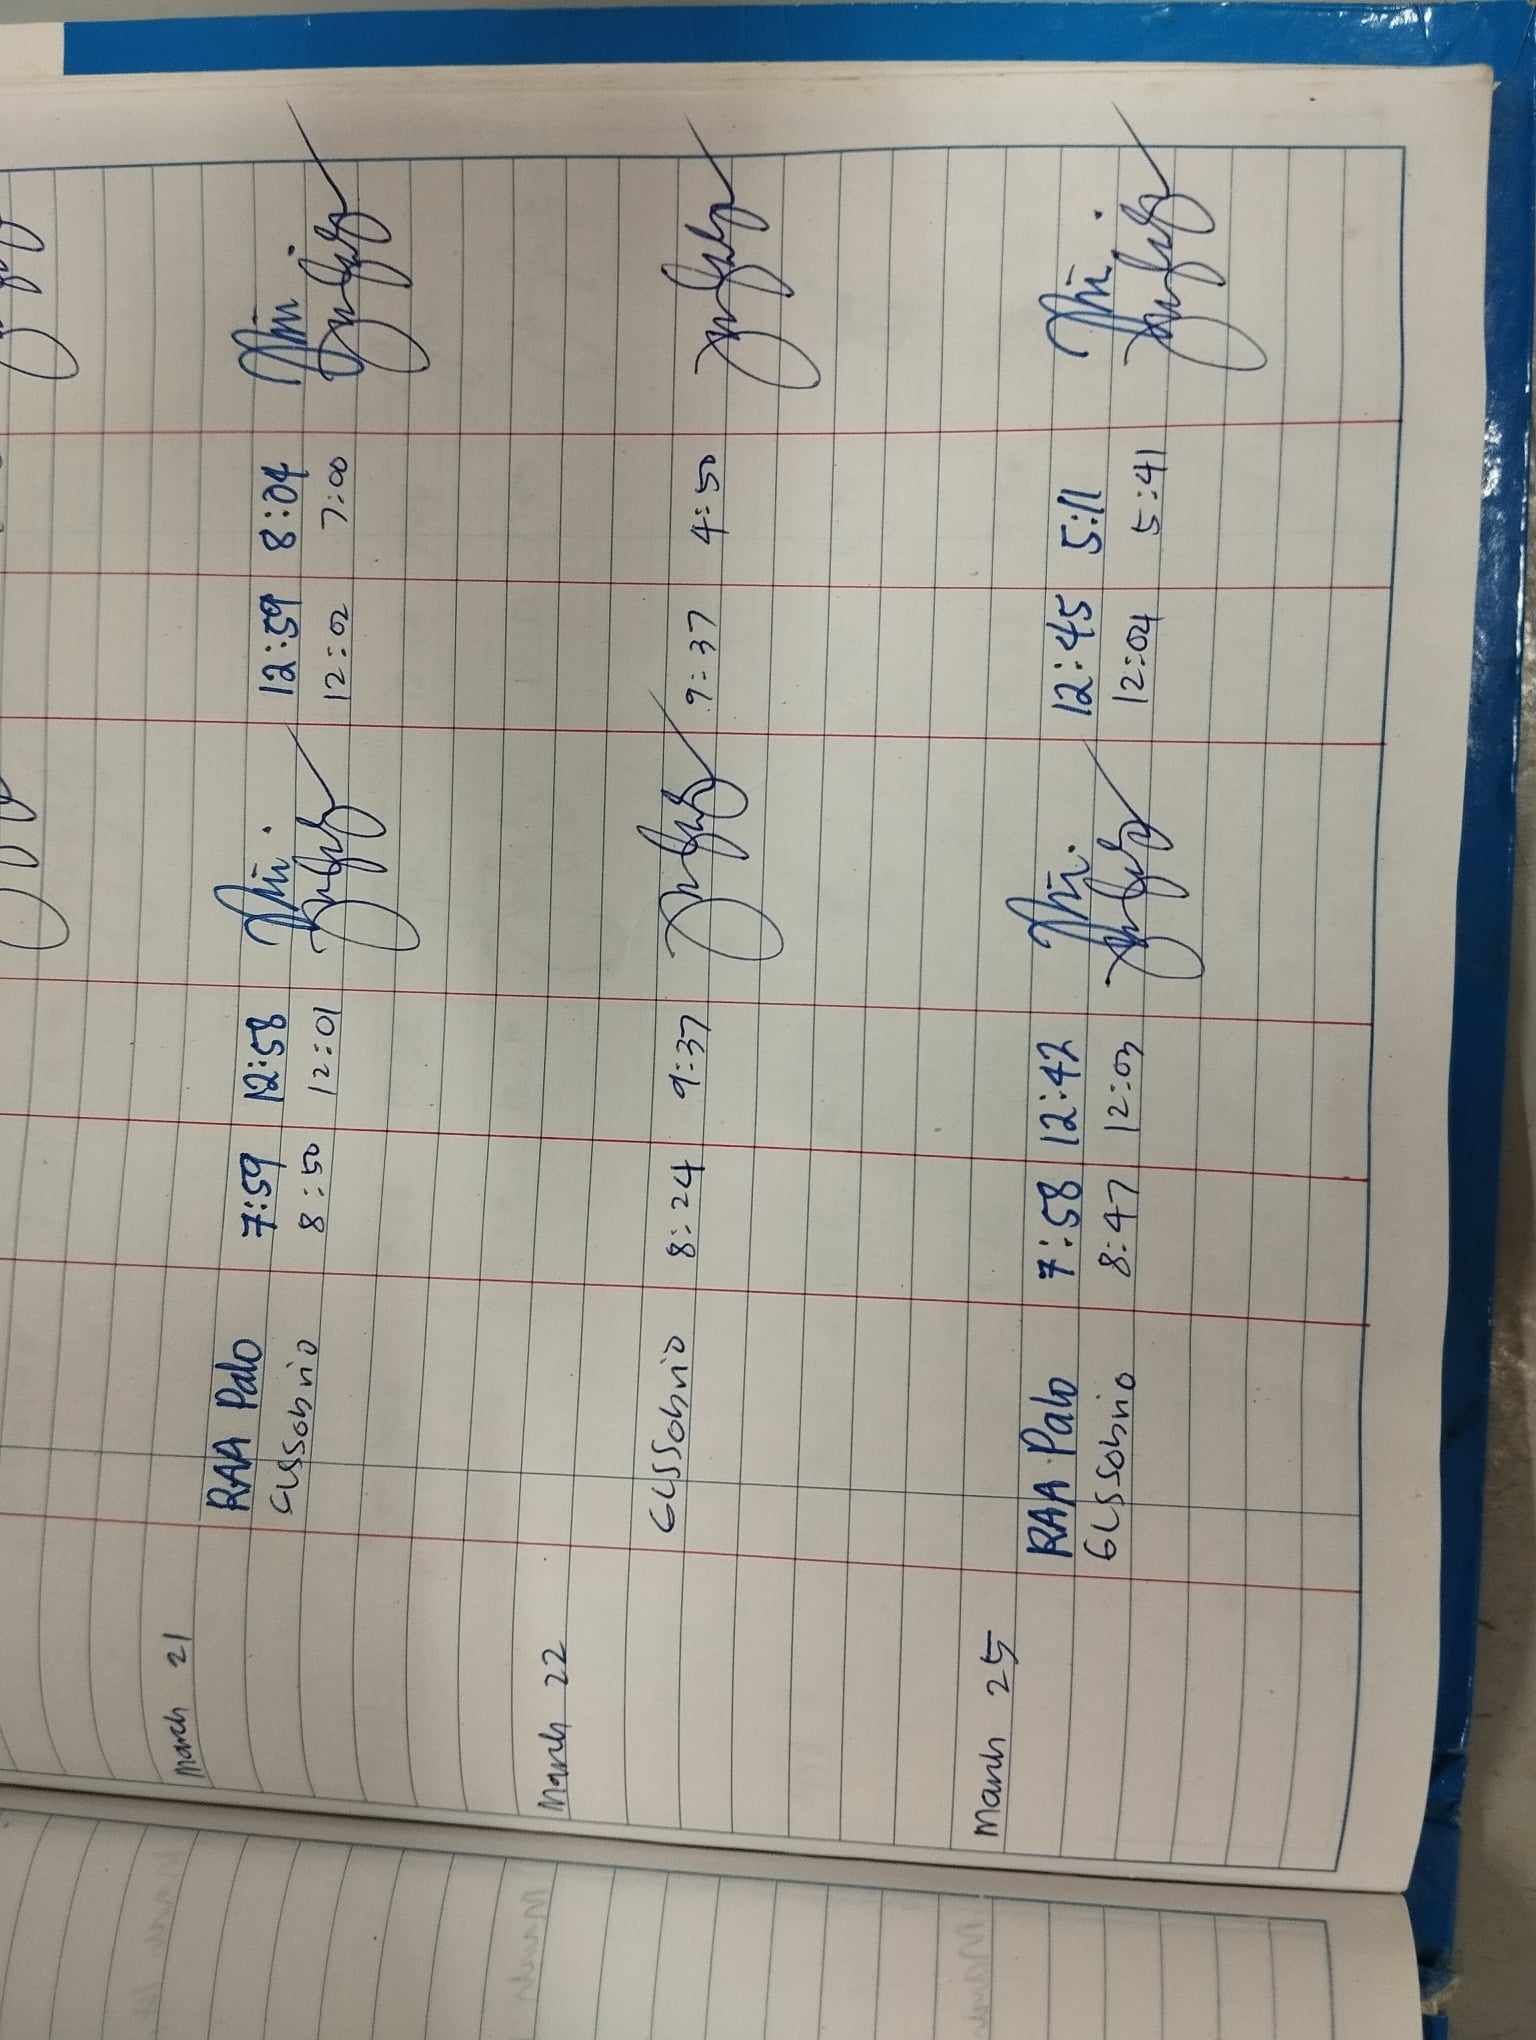 March 21
RAA Palo 7:59 12:58 12:59 8:04
GLSSobrio 8:50 12:01 12:02 7:00
March 22
GLSSobrio 8:24 9:37 9:37 4:50
March 25
RAA Palo 7:58 12:42 12:45 5:11
GLSSobrio 8:47 12:03 12:04 5:41